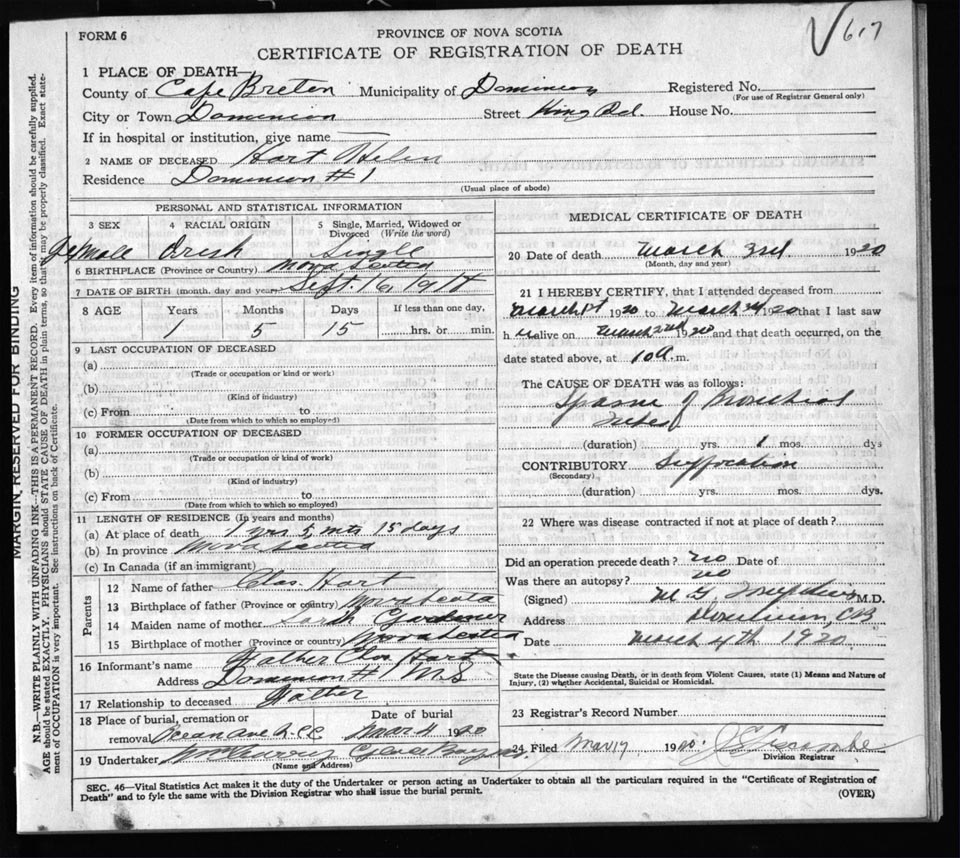 617
FORM 6
PROVINCE OF NOVA SCOTIA
CERTIFICATE OF REGISTRATION OF DEATH
1 PLACE OF DEATH—
County of Cape Breton Municipality of Dominion Registered No.
(For use of Registrar General only)
City or Town Dominion Street King Rd. House No.
If in hospital or institution, give name
2 NAME OF DECEASED Hart Helen
Residence Dominion # 1
(Usual place of abode)
PERSONAL AND STATISTICAL INFORMATION
3 SEX 4 RACIAL ORIGIN 5 Single, Married, Widowed or Divorced (Write the word)
Female Irish Single
6 BIRTHPLACE (Province or Country) Nova Scotia
7 DATE OF BIRTH (month, day and year) Sept. 16, 1918
8 AGE Years Months Days If less than one day,
1 5 15 hrs. or min.
9 LAST OCCUPATION OF DECEASED
(a)
(Trade or occupation or kind or work)
(b)
(Kind of industry)
(c) From to
(Date from which to which so employed)
10 FORMER OCCUPATION OF DECEASED
(a)
(Trade or occupation or kind of work)
(b)
(Kind of industry)
(c) From to
(Date from which to which so employed)
11 LENGTH OF RESIDENCE (In years and months)
(a) At place of death 1 yrs 5 mts 15 days
(b) In province Nova Scotia
(c) In Canada (if an immigrant)
Parents
12 Name of father Chas. Hart
13 Birthplace of father (Province or country) Nova Scotia
14 Maiden name of mother Sarah Gardiner
15 Birthplace of mother (Province or country) Nova Scotia
16 Informant's name Father Chas Hart
Address Dominion # 1 N.S
17 Relationship to deceased Father
18 Place of burial, cremation or Date of burial
removal Ocean Ave Mar 4 1920
19 Undertaker Glace Bay
(Name and Address)
MEDICAL CERTIFICATE OF DEATH
20 Date of death March 3rd. 1920
(Month, day and year)
21 I HEREBY CERTIFY, that I attended deceased from
March 1st 1920 to March 2nd 1920 that I last saw
h alive on March 2nd 1920 and that death occurred, on the
date stated above, at 10 a m.
The CAUSE OF DEATH was as follows:
Spasm of Bronchial
Tubes
(duration) yrs. 1 mos. dys
CONTRIBUTORY Suffocation
(Secondary)
(duration) yrs. mos. dys.
22 Where was disease contracted if not at place of death?
Did an operation precede death? no Date of
Was there an autopsy? no
(Signed) M.D.
Address Dominion, CB
Date March 4th 1920
State the Disease causing Death, or in death from Violent Causes, state (1) Means and Nature of
Injury, (2) whether Accidental, Suicidal or Homicidal.
23 Registrar's Record Number
24 Filed Mar 17 1920.
Division Registrar
SEC. 46—Vital Statistics Act makes it the duty of the Undertaker or person acting as Undertaker to obtain all the particulars required in the "Certificate of Registration of
Death" and to fyle the same with the Division Registrar who shall issue the burial permit.
(OVER)
MARGIN RESERVED FOR BINDING
N.B.—WRITE PLAINLY WITH UNFADING INK—THIS IS A PERMANENT RECORD. Every item of information should be carefully supplied.
AGE should be stated EXACTLY. PHYSICIANS should STATE CAUSE OF DEATH in plain terms, so that it may be properly classified. Exact state-
ment of OCCUPATION is very important. See instructions on back of Certificate.